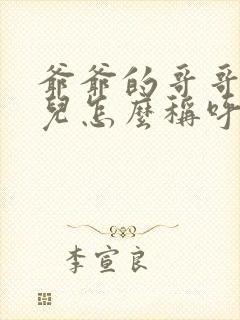 爺爺的哥哥
兒怎麼稱呼
李宣良